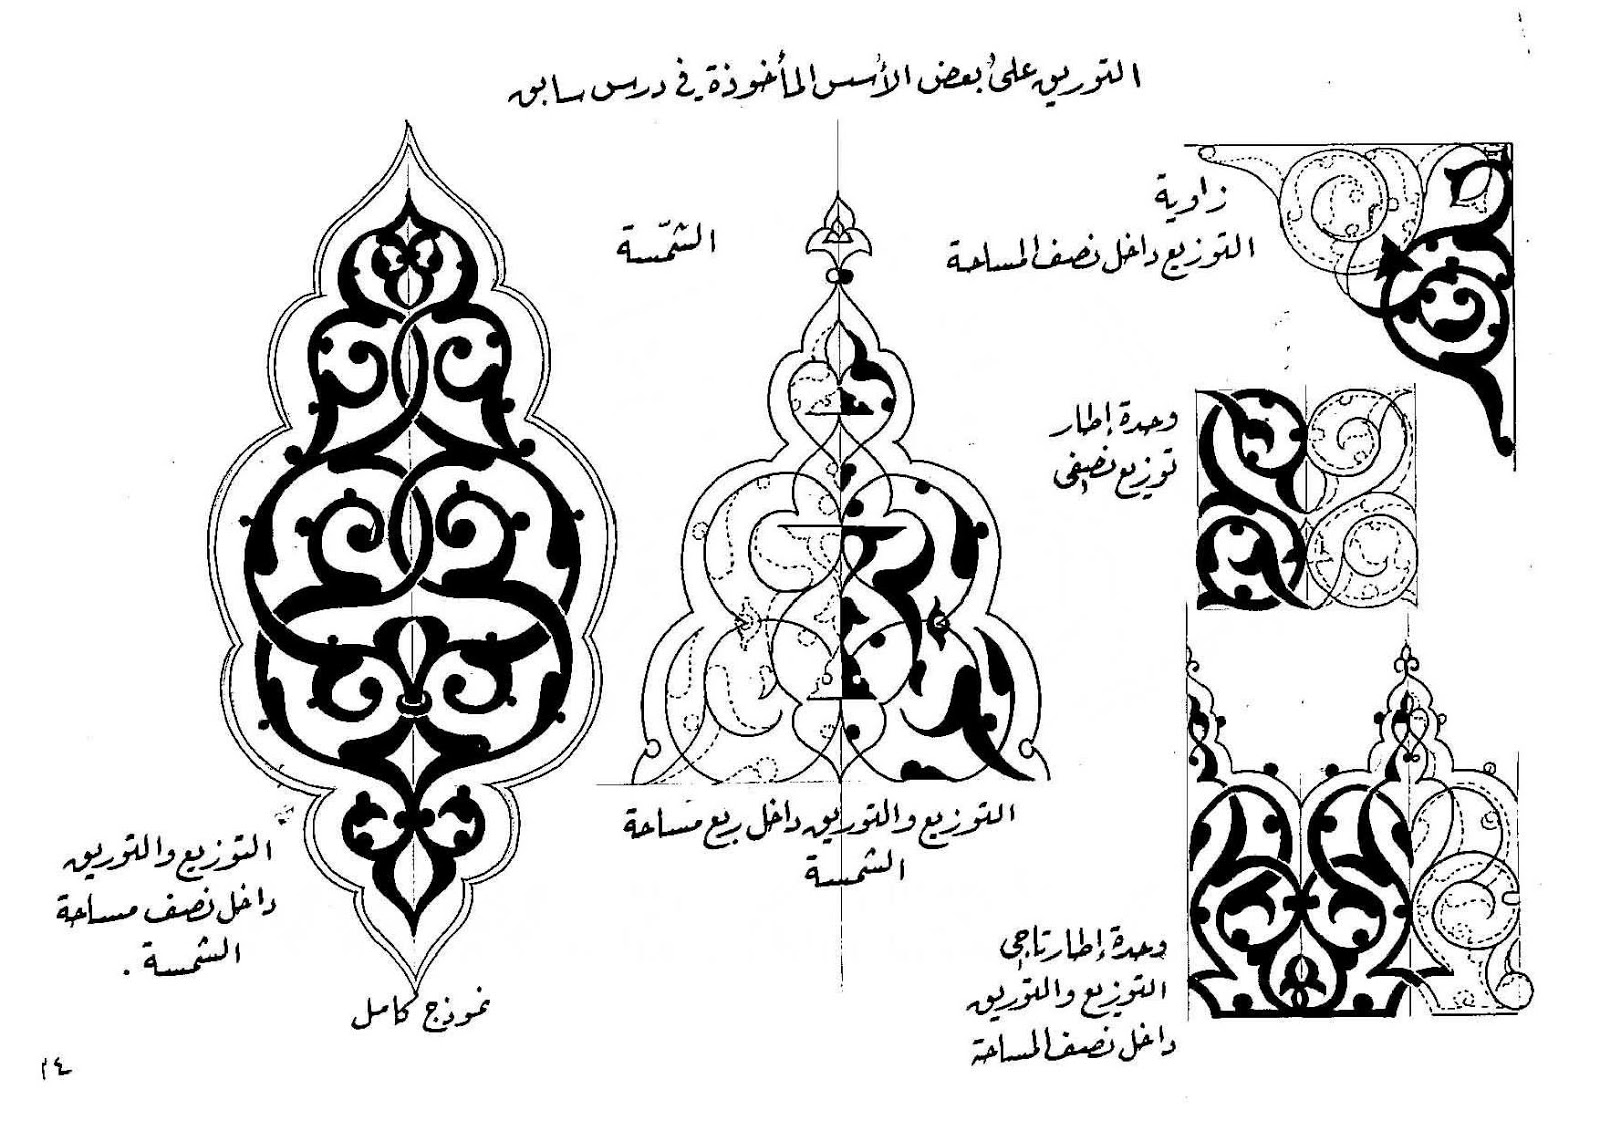 التوريق على بعض الأسس المأخوذة في درس سابق
زاوية
التوزيع داخل نصف المساحة
الشمّسة
وحدة إطار
توزيع نصفي
التوزيع والتوريق داخل ربع مساحة
الشمسة
التوزيع والتوريق
داخل نصف مساحة
الشمسة .
نموذج كامل
وحدة إطار تاجي
التوزيع والتوريق
داخل نصف المساحة
٢٤